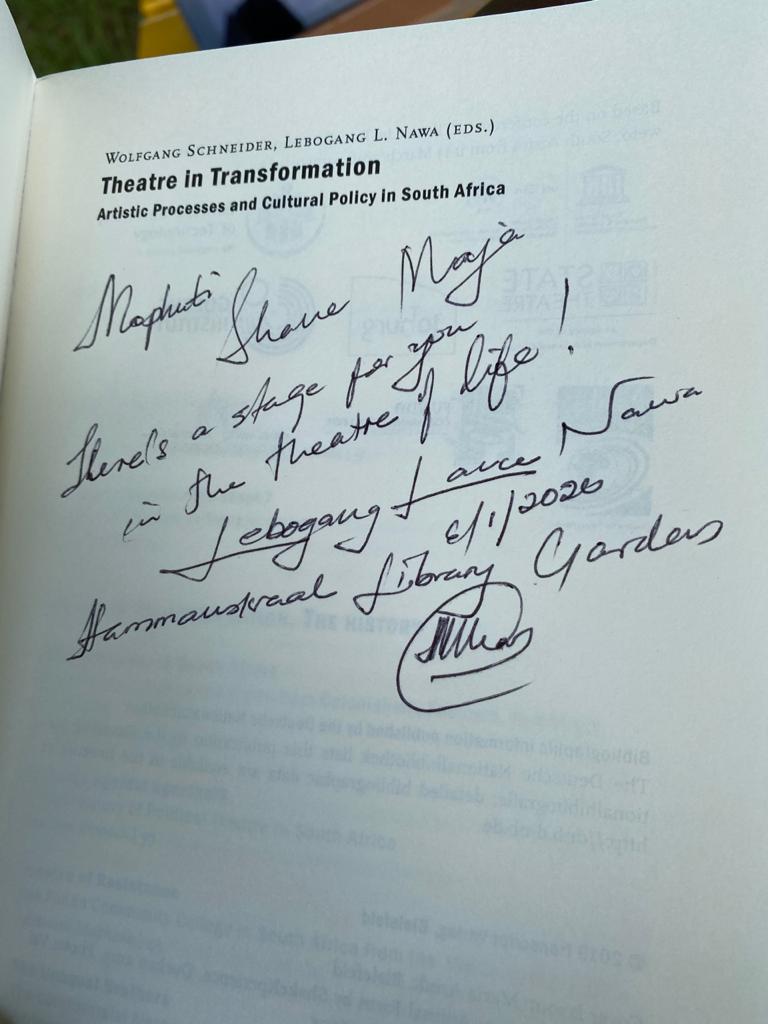 WOLFGANG SCHNEIDER, LEBOGANG L. NAWA (EDS.)
Theatre in Transformation
Artistic Processes and Cultural Policy in South Africa
Maphuti Shane Maja
There's a stage for you
in the theatre of life!
Lebogang Lance Nawa
6/1/2020
Hammanskraal Library Gardens